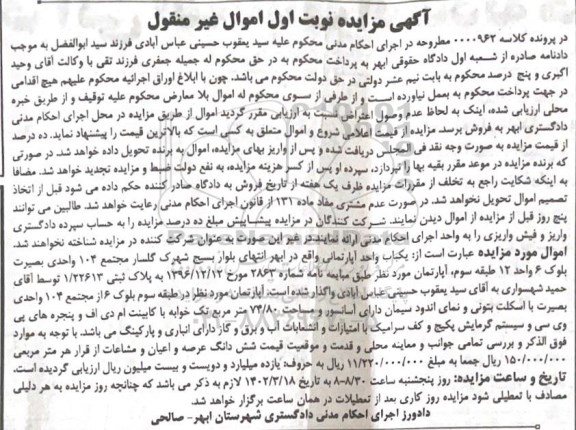 آگهی مزایده نوبت اول اموال غیر منقول
در پرونده کلاسه ۰۰۰۰۹۶۲ مطروحه در اجرای احکام مدنی محکوم علیه سید یعقوب حسینی عباس آبادی فرزند سید ابوالفضل به موجب
دادنامه صادره از شعبه اول دادگاه حقوقی ابهر به پرداخت محکوم به در حق محکوم له جمیله جعفری فرزند تقی با وکالت آقای وحید
اکبری و پنج درصد محکوم به بابت نیم عشر دولتی در حق دولت محکوم می باشد. چون با ابلاغ اوراق اجرائیه محکوم علیهم هیچ اقدامی
در جهت پرداخت محکوم به بعمل نیاورده است و از طرفی از سوی محکوم له اموال بلا معارض محکوم علیه توقیف و از طریق خبره
محلی ارزیابی شده، اینک به لحاظ عدم وصول اعتراض نسبت به ارزیابی مقرر گردید اموال از طریق مزایده در محل اجرای احکام مدنی
دادگستری ابهر به فروش برسد. مزایده از قیمت اعلامی شروع و اموال متعلق به کسی است که بالاترین قیمت را پیشنهاد نماید. ده درصد
از قیمت مزایده به صورت وجه نقد فی المجلس دریافت شده و پس از واریز بهای مزایده، اموال به برنده تحویل داده خواهد شد. در صورتی
که برنده مزایده در موعد مقرر بقیه بها را نپردازد، سپرده او پس از کسر هزینه مزایده، به نفع دولت ضبط و مزایده تجدید خواهد شد. مضافا
به اینکه شکایت راجع به تخلف از مقررات مزایده ظرف یک هفته از تاریخ فروش به دادگاه صادر کننده حکم داده می شود قبل از اتخاذ
تصمیم اموال تحویل نخواهد شد. در صورت عدم مشتری مفاد ماده ۱۳۱ از قانون اجرای احکام مدنی رعایت خواهد شد. طالبین می توانند
پنج روز قبل از مزایده از اموال دیدن نمایند. شرکت کنندگان در مزایده پیشاپیش مبلغ ده درصد مزایده را به حساب سپرده دادگستری
واریز و فیش واریزی را به واحد اجرای احکام مدنی ارائه نمایند در غیر این صورت به عنوان شرکت کننده در مزایده شناخته نخواهند شد.
اموال مورد مزایده عبارت است از: یکباب واحد آپارتمانی واقع در ابهر انتهای بلوار بسیج شهرک گلسار مجتمع ۱۰۴ واحدی بصیرت
بلوک ۶ واحد ۱۲ طبقه سوم، آپارتمان مورد نظر طبق مبایعه نامه شماره ۲۸۶۳ مورخ ۱۳۹۶/۱۲/۱۲ به پلاک ثبتی ۱/۲۲۶۱۳ توسط آقای
حمید شهسواری به آقای سید یعقوب حسینی عباس آبادی واگذار شده است. آپارتمان مورد نظر در طبقه سوم بلوک ۶ از مجتمع ۱۰۴ واحدی
بصیرت با اسکلت بتونی و نمای اندود سیمان دارای آسانسور و بمساحت ۷۳/۸۰ متر مربع تک خوابه با کابینت ام دی اف و پنجره های پی
وی سی و سیستم گرمایش پکیج و کف سرامیک با امتیازات و انشعابات آب و برق و گاز دارای انباری و پارکینگ می باشد. با توجه به موارد
فوق الذکر و بررسی تمامی جوانب و معاینه محلی و قدمت و موقعیت قیمت شش دانگ عرصه و اعیان و مشاعات از قرار هر متر مربعی
۱۵۰/۰۰۰/۰۰۰ ریال جمعا به مبلغ ۱۱/۲۲۰/۰۰۰/۰۰۰ ریال به حروف: یازده میلیارد و دویست و بیست میلیون ریال ارزیابی گردیده است.
تاریخ و ساعت مزایده: روز پنجشنبه ساعت ۸/۳۰-۸ به تاریخ ۱۴۰۲/۳/۱۸ لازم به ذکر می باشد که چنانچه روز مزایده به هر دلیلی
مصادف با تعطیلی شود مزایده روز کاری بعد از تعطیلات در همان ساعت برگزار خواهد شد.
دادورز اجرای احکام مدنی دادگستری شهرستان ابهر- صالحی